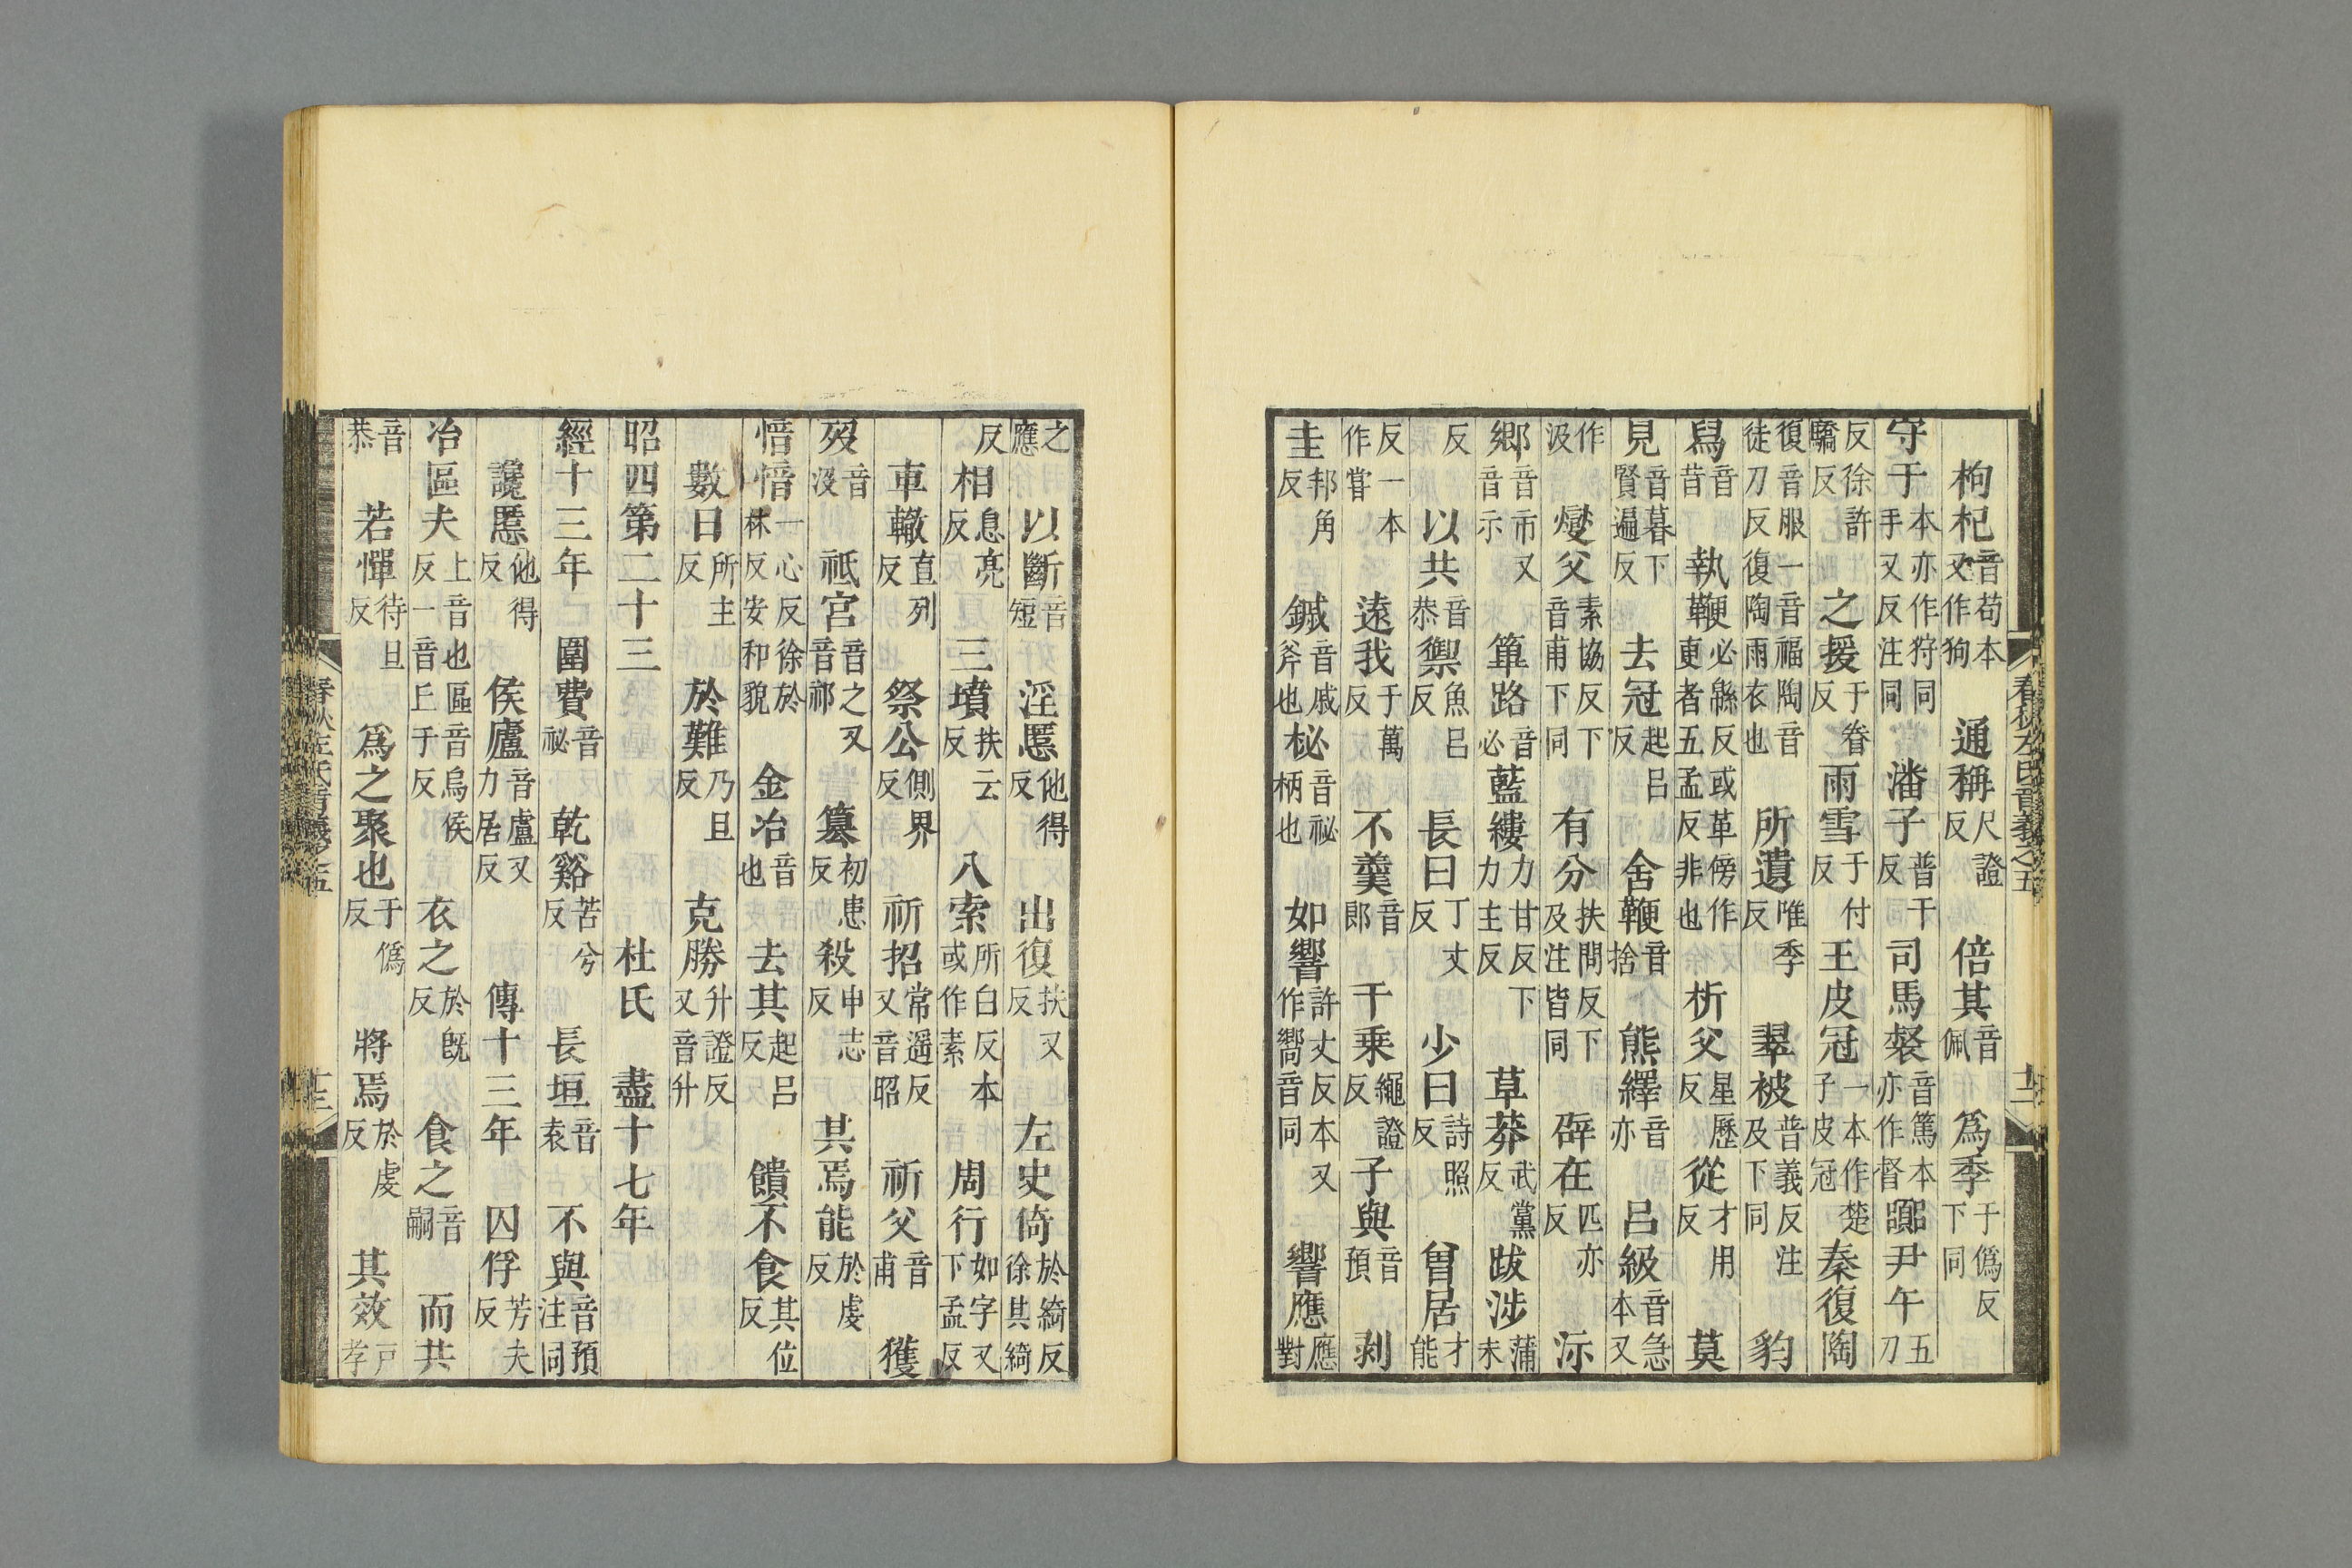 枸杞音苟本又作狗　通稱尺證反　倍其音佩　為季于偽反下同
守于本亦作狩同手又反注同　潘子普干反　司馬裻音篤本亦作督　嚻尹午五刀
反徐許驕反　之援于眷反　雨雪于付反　王皮冠一本作楚子皮冠　秦復陶
復音服一音福陶音徒刀反復陶雨衣也　所遺唯季反　翠被普義反注及下同　豹
舄音昔　執鞭必緜反或革傍作更者五孟反非也　析父星歷反　從才用反　莫
見音暮下賢遍反　去冠起呂反　舍鞭音捨　熊繹音亦　呂級音急本又
作汲　燮父素協反下音甫下同　有分扶問反下及注皆同　辟在匹亦反　沶
鄉音市又音示　篳路音必　藍縷力甘反下力主反　草莽武黨反　跋涉蒲末
反　以共音恭　禦魚呂反　長曰丁丈反　少曰詩照反　曾居才能
反一本作嘗　遠我于萬反　不羹音郎　千乘繩證反　子與音預　剥
圭邦角反　鏚音戚斧也　柲音祕柄也　如響許丈反本又作嚮音同　響應應對
春秋左氏音義之五　十二
之應　以斷音短　淫慝他得反　出復扶又反　左史倚於綺反徐其綺
反　相息亮反　三墳扶云反　八索所白反本或作素　周行如字又下孟反
車轍直列反　祭公側界反　祈招常遥反又音昭　祈父音甫　獲
歿音沒　祗宮音之又音祁　篡初患反　殺申志反　其焉能於虔反
愔愔一心反徐於林反安和貌　金冶音也　去其起呂反　饋不食其位反
數日所主反　於難乃旦反　克勝升證反又音升
昭四第二十三　杜氏　盡十七年
經十三年　圍費音祕　乾谿苦兮反　長垣音袁　不與音預注同
讒慝他得反　侯廬音盧又力居反　傳十三年　囚俘芳夫反
冶區夫上音也區音烏侯反一音丘于反　衣之於旣反　食之音嗣　而共
音恭　若憚待旦反　為之聚也于偽反　將焉於虔反　其效戸孝
春秋左氏音義之五　十三